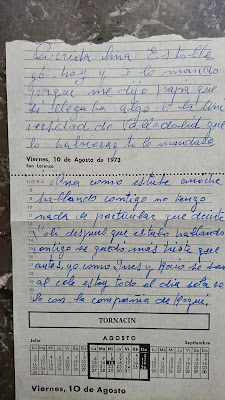 Querida Ana Esto lle
gó hoy y te lo mando
porque me dijo papá que
si llegaba algo de la Uni
versidad de Valladolid que
lo
te lo mandaba
Viernes, 10 de Agosto de 1973
San Lorenzo
Ana como estube anoche
hablando contigo no tengo
nada de particular que decirte
Loli después que estubo hablando
contigo se quedó más triste que
antes, yo como Ines y Rocio se van
al cole estoy todo el dia sola so
lo con la compañia de Roque.
TORNACIN
Julio
AGOSTO
Septiembre
Viernes, 10 de Agosto